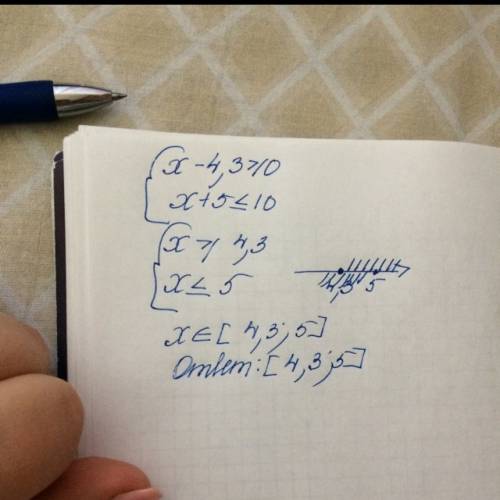 x - 4,3 ≥ 0
x + 5 ≤ 10
x ≥ 4,3
x ≤ 5
4,3 5
x ∈ [4,3; 5]
Ответ: [4,3; 5]